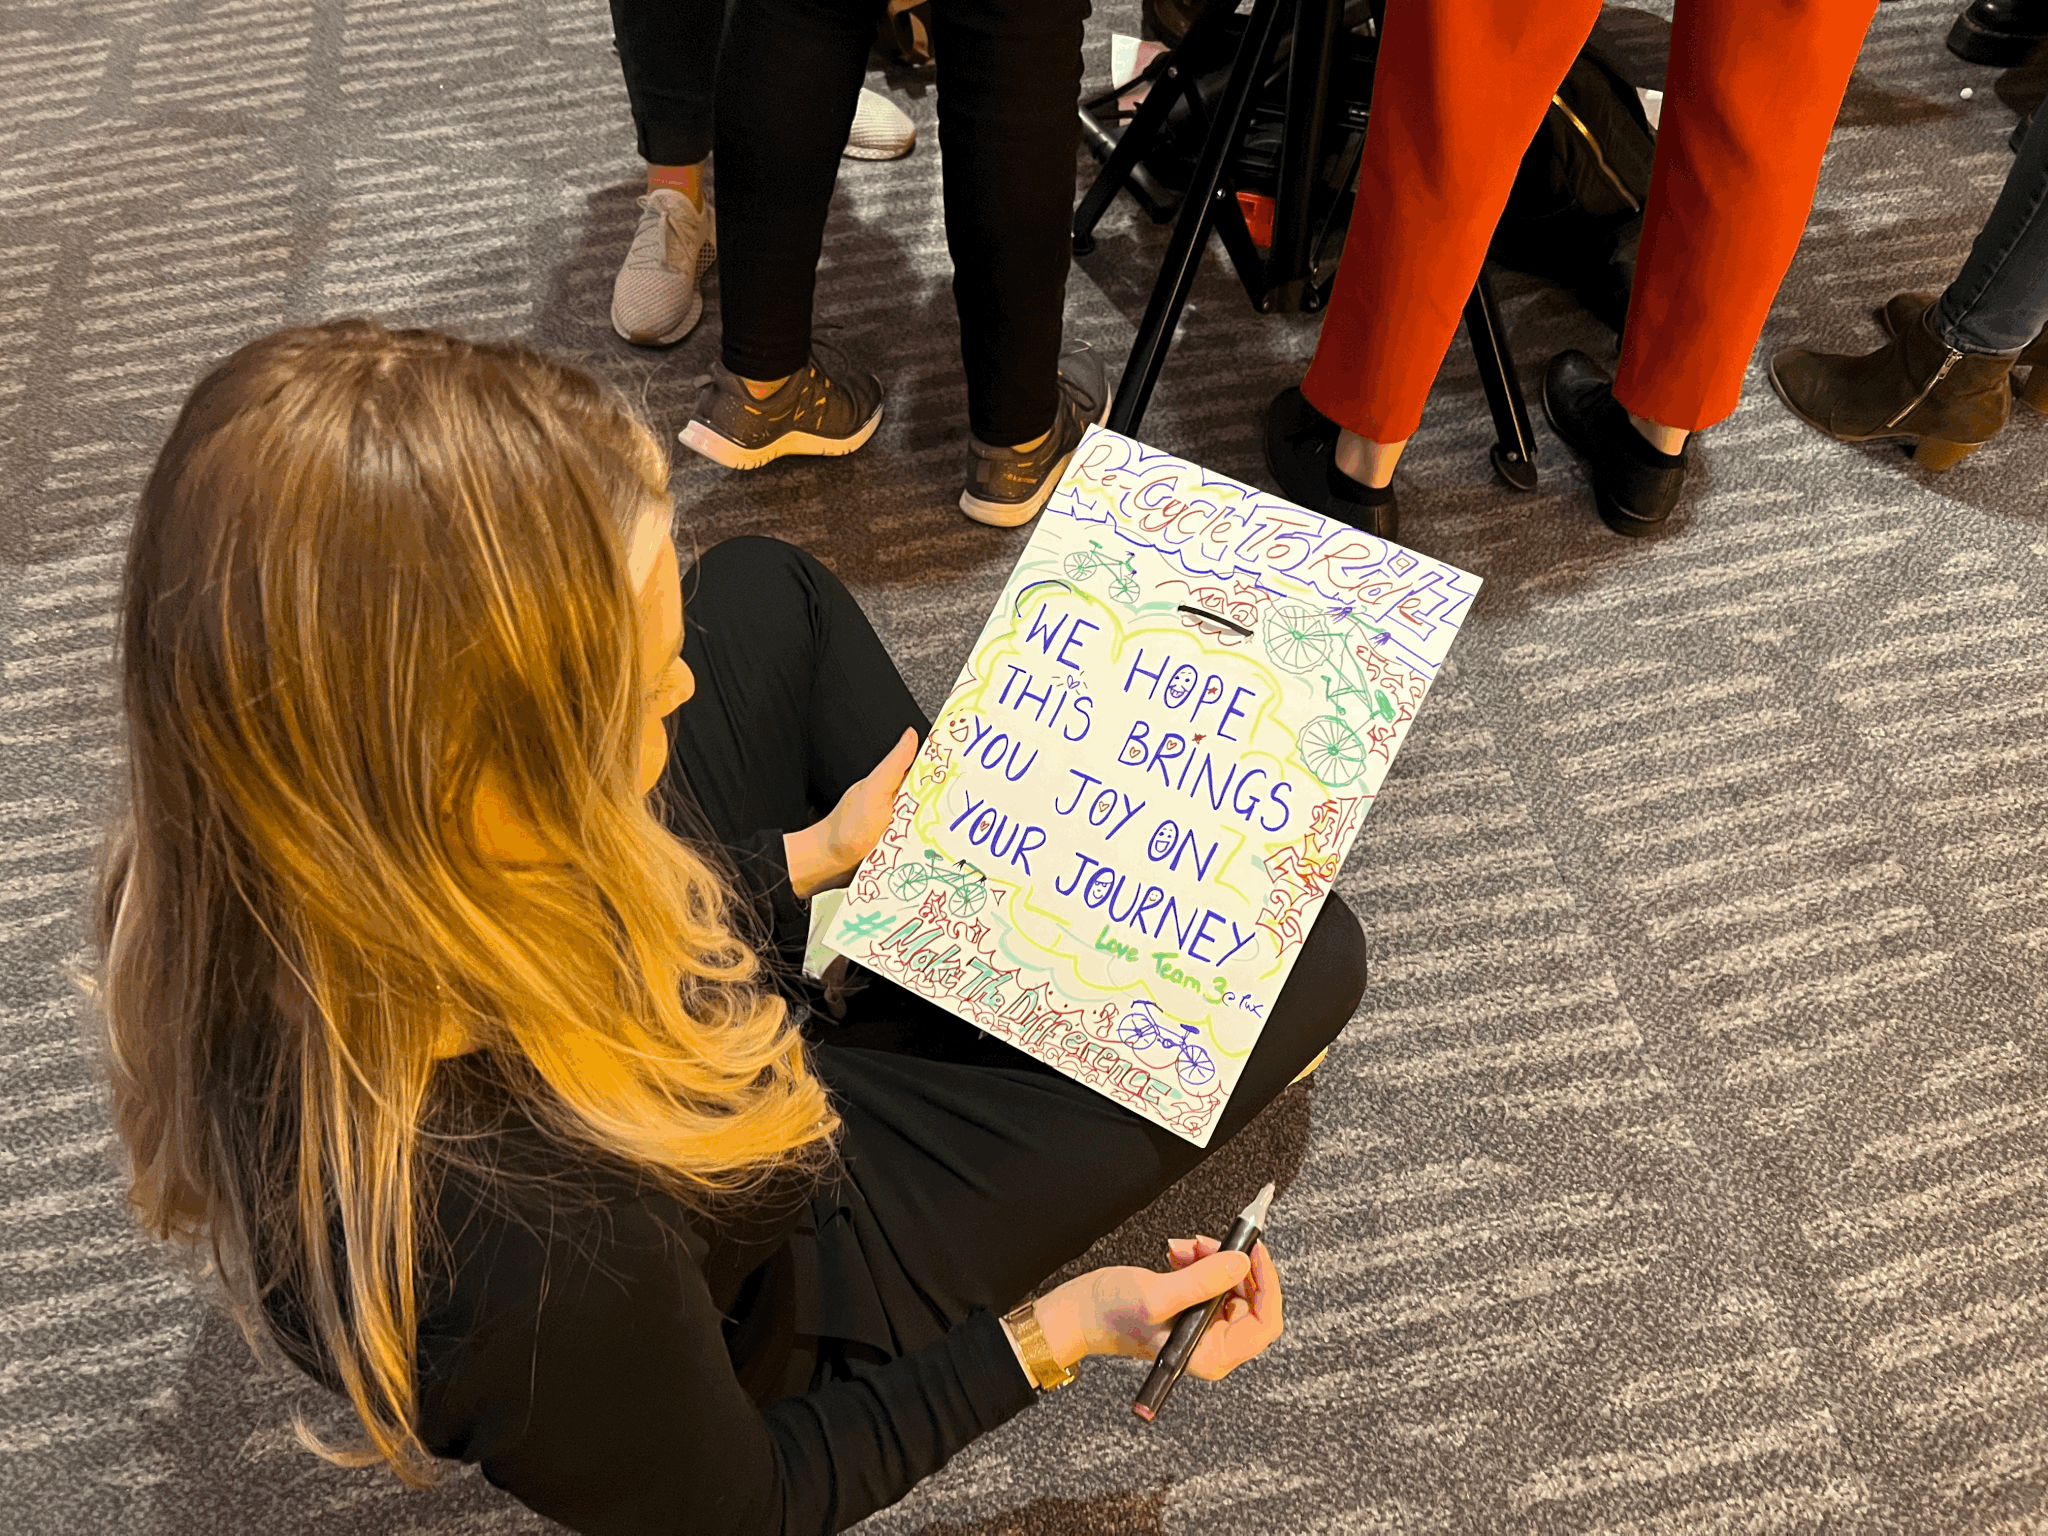 Re-Cycle To Ride!!
WE HOPE
THIS BRINGS
YOU JOY ON
YOUR JOURNEY
Love Team 3 @ PwC
#MakeTheDifference